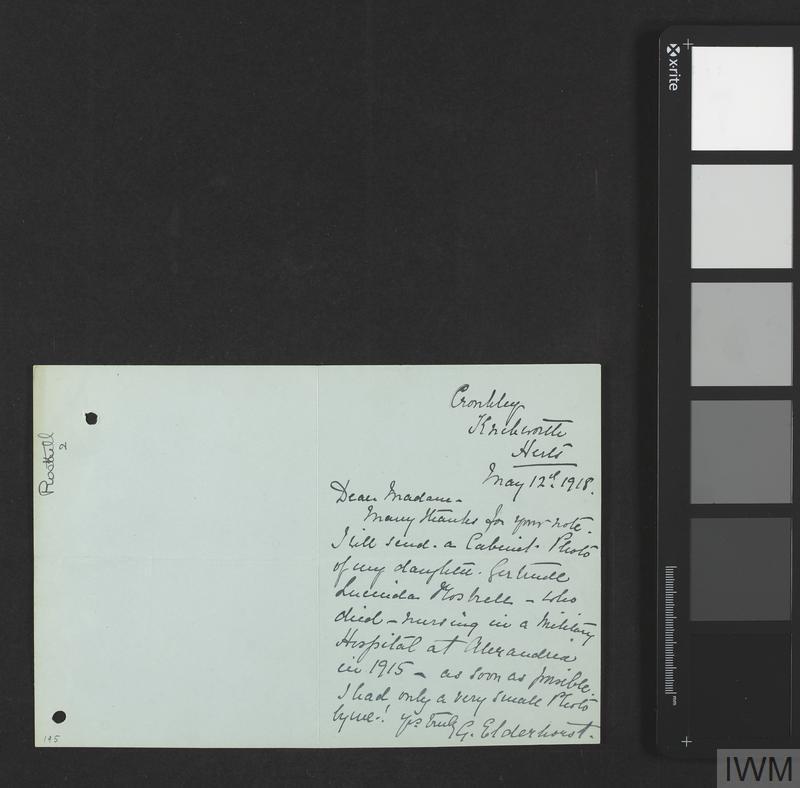 Knebworth
Herts
May 12th. 1918.
Dear Madam -
Many thanks for your note.
I will send. a Cabinet. Photo
of my daughter. Gertrude
Lucinda - who
died - nursing in a Military
Hospital at Alexandria
in 1915 - as soon as possible.
I had only a very small Photo
by me -! yrs truly G. Elderhorst.
2
195
x-rite
mm
IWM